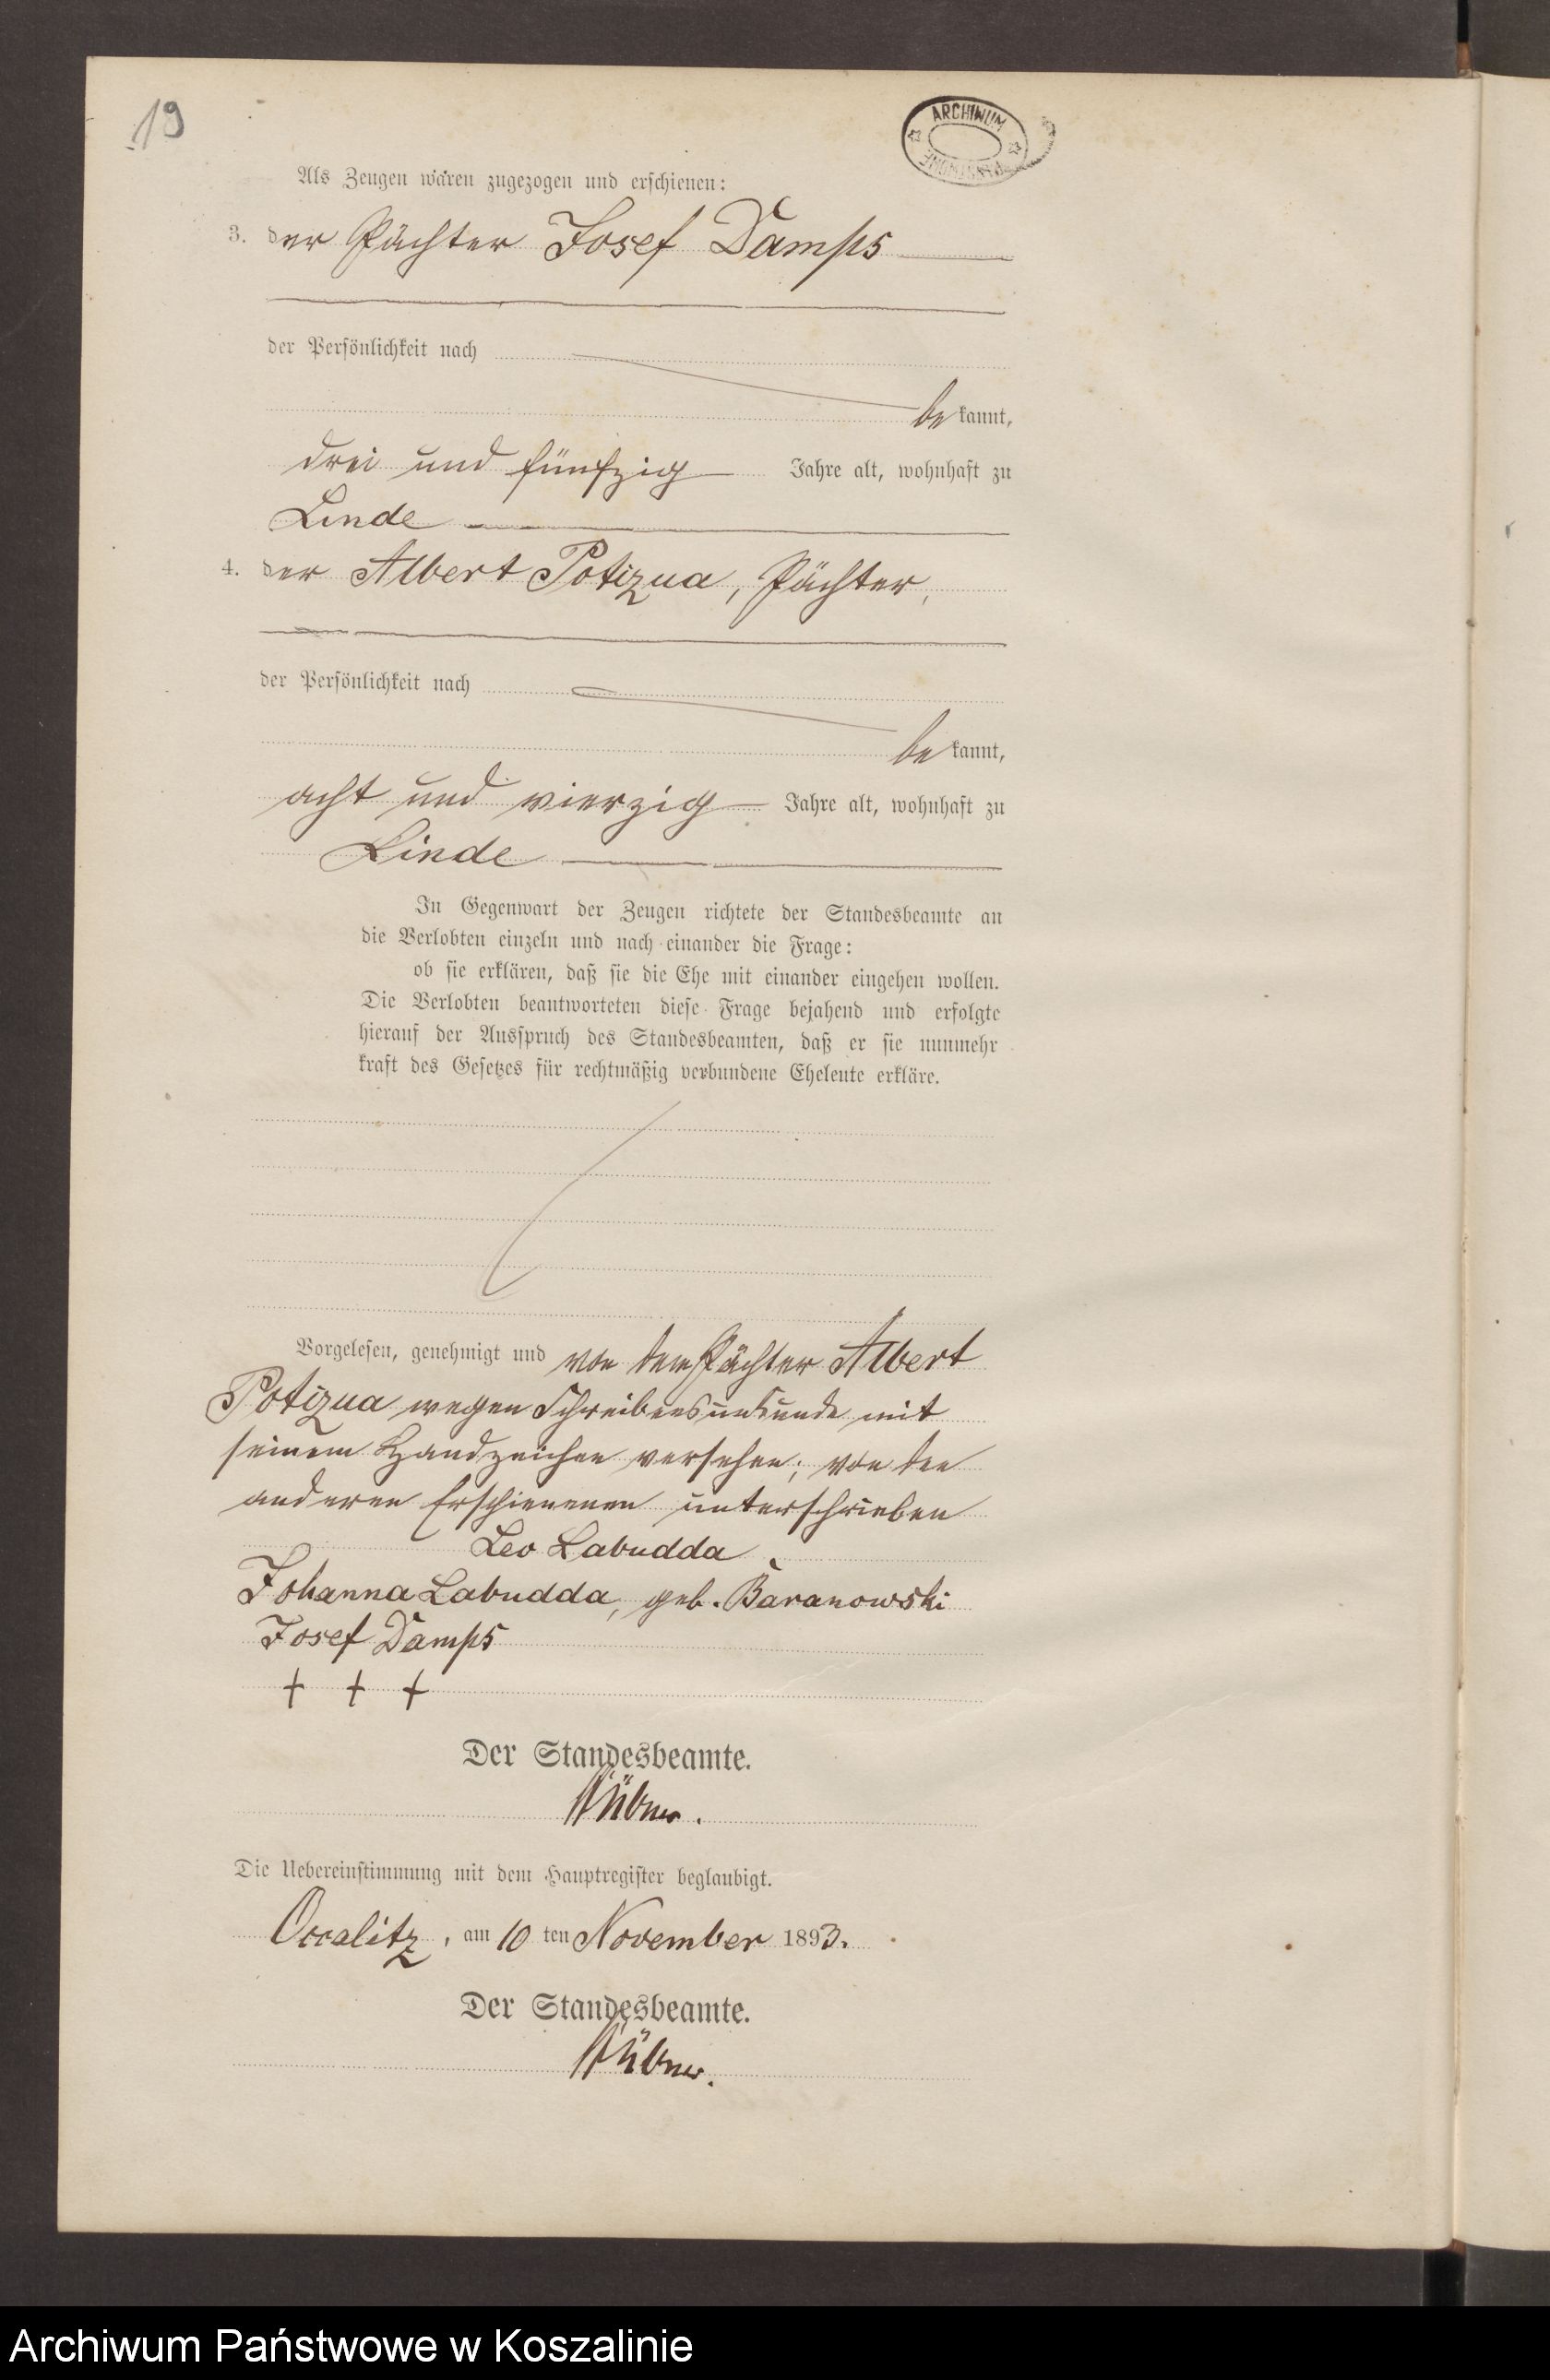 19
ARCHIWUM
Als Zeugen waren zugezogen und erschienen:
3. der Pächter Josef Damps
der Persönlichkeit nach
bekannt,
drei und fünfzig Jahre alt, wohnhaft zu
Linde
4. der Albert Potizua, Pächter,
der Persönlichkeit nach
bekannt,
acht und vierzig Jahre alt, wohnhaft zu
Linde
In Gegenwart der Zeugen richtete der Standesbeamte an
die Verlobten einzeln und nach einander die Frage:
ob sie erklären, daß sie die Ehe mit einander eingehen wollen.
Die Verlobten beantworteten diese Frage bejahend und erfolgte
hierauf der Ausspruch des Standesbeamten, daß er sie nunmehr
kraft des Gesetzes für rechtmäßig verbundene Eheleute erkläre.
Vorgelesen, genehmigt und von dem Pächter Albert
Potizua wegen Schreibensunkunde mit
seinem Handzeichen versehen; von den
anderen Erschienenen unterschrieben
Leo Labudda
Johanna Labudda, geb. Baranowski
Josef Damps
+ + +
Der Standesbeamte.
Hübner.
Die Uebereinstimmung mit dem Hauptregister beglaubigt.
Occalitz, am 10ten November 1893.
Der Standesbeamte.
Hübner.
Archiwum Państwowe w Koszalinie